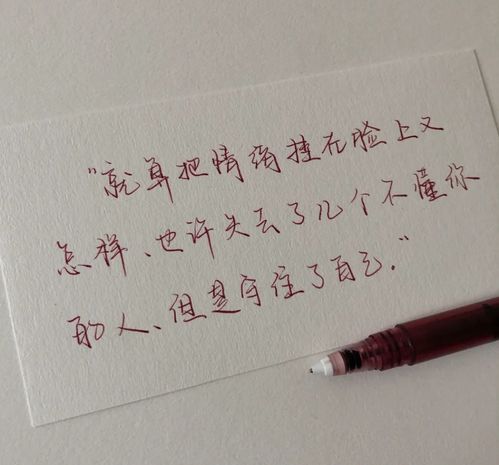 "就算把情绪挂在脸上又
怎样、也许失去了几个不懂你
的人、但是守住了自己."